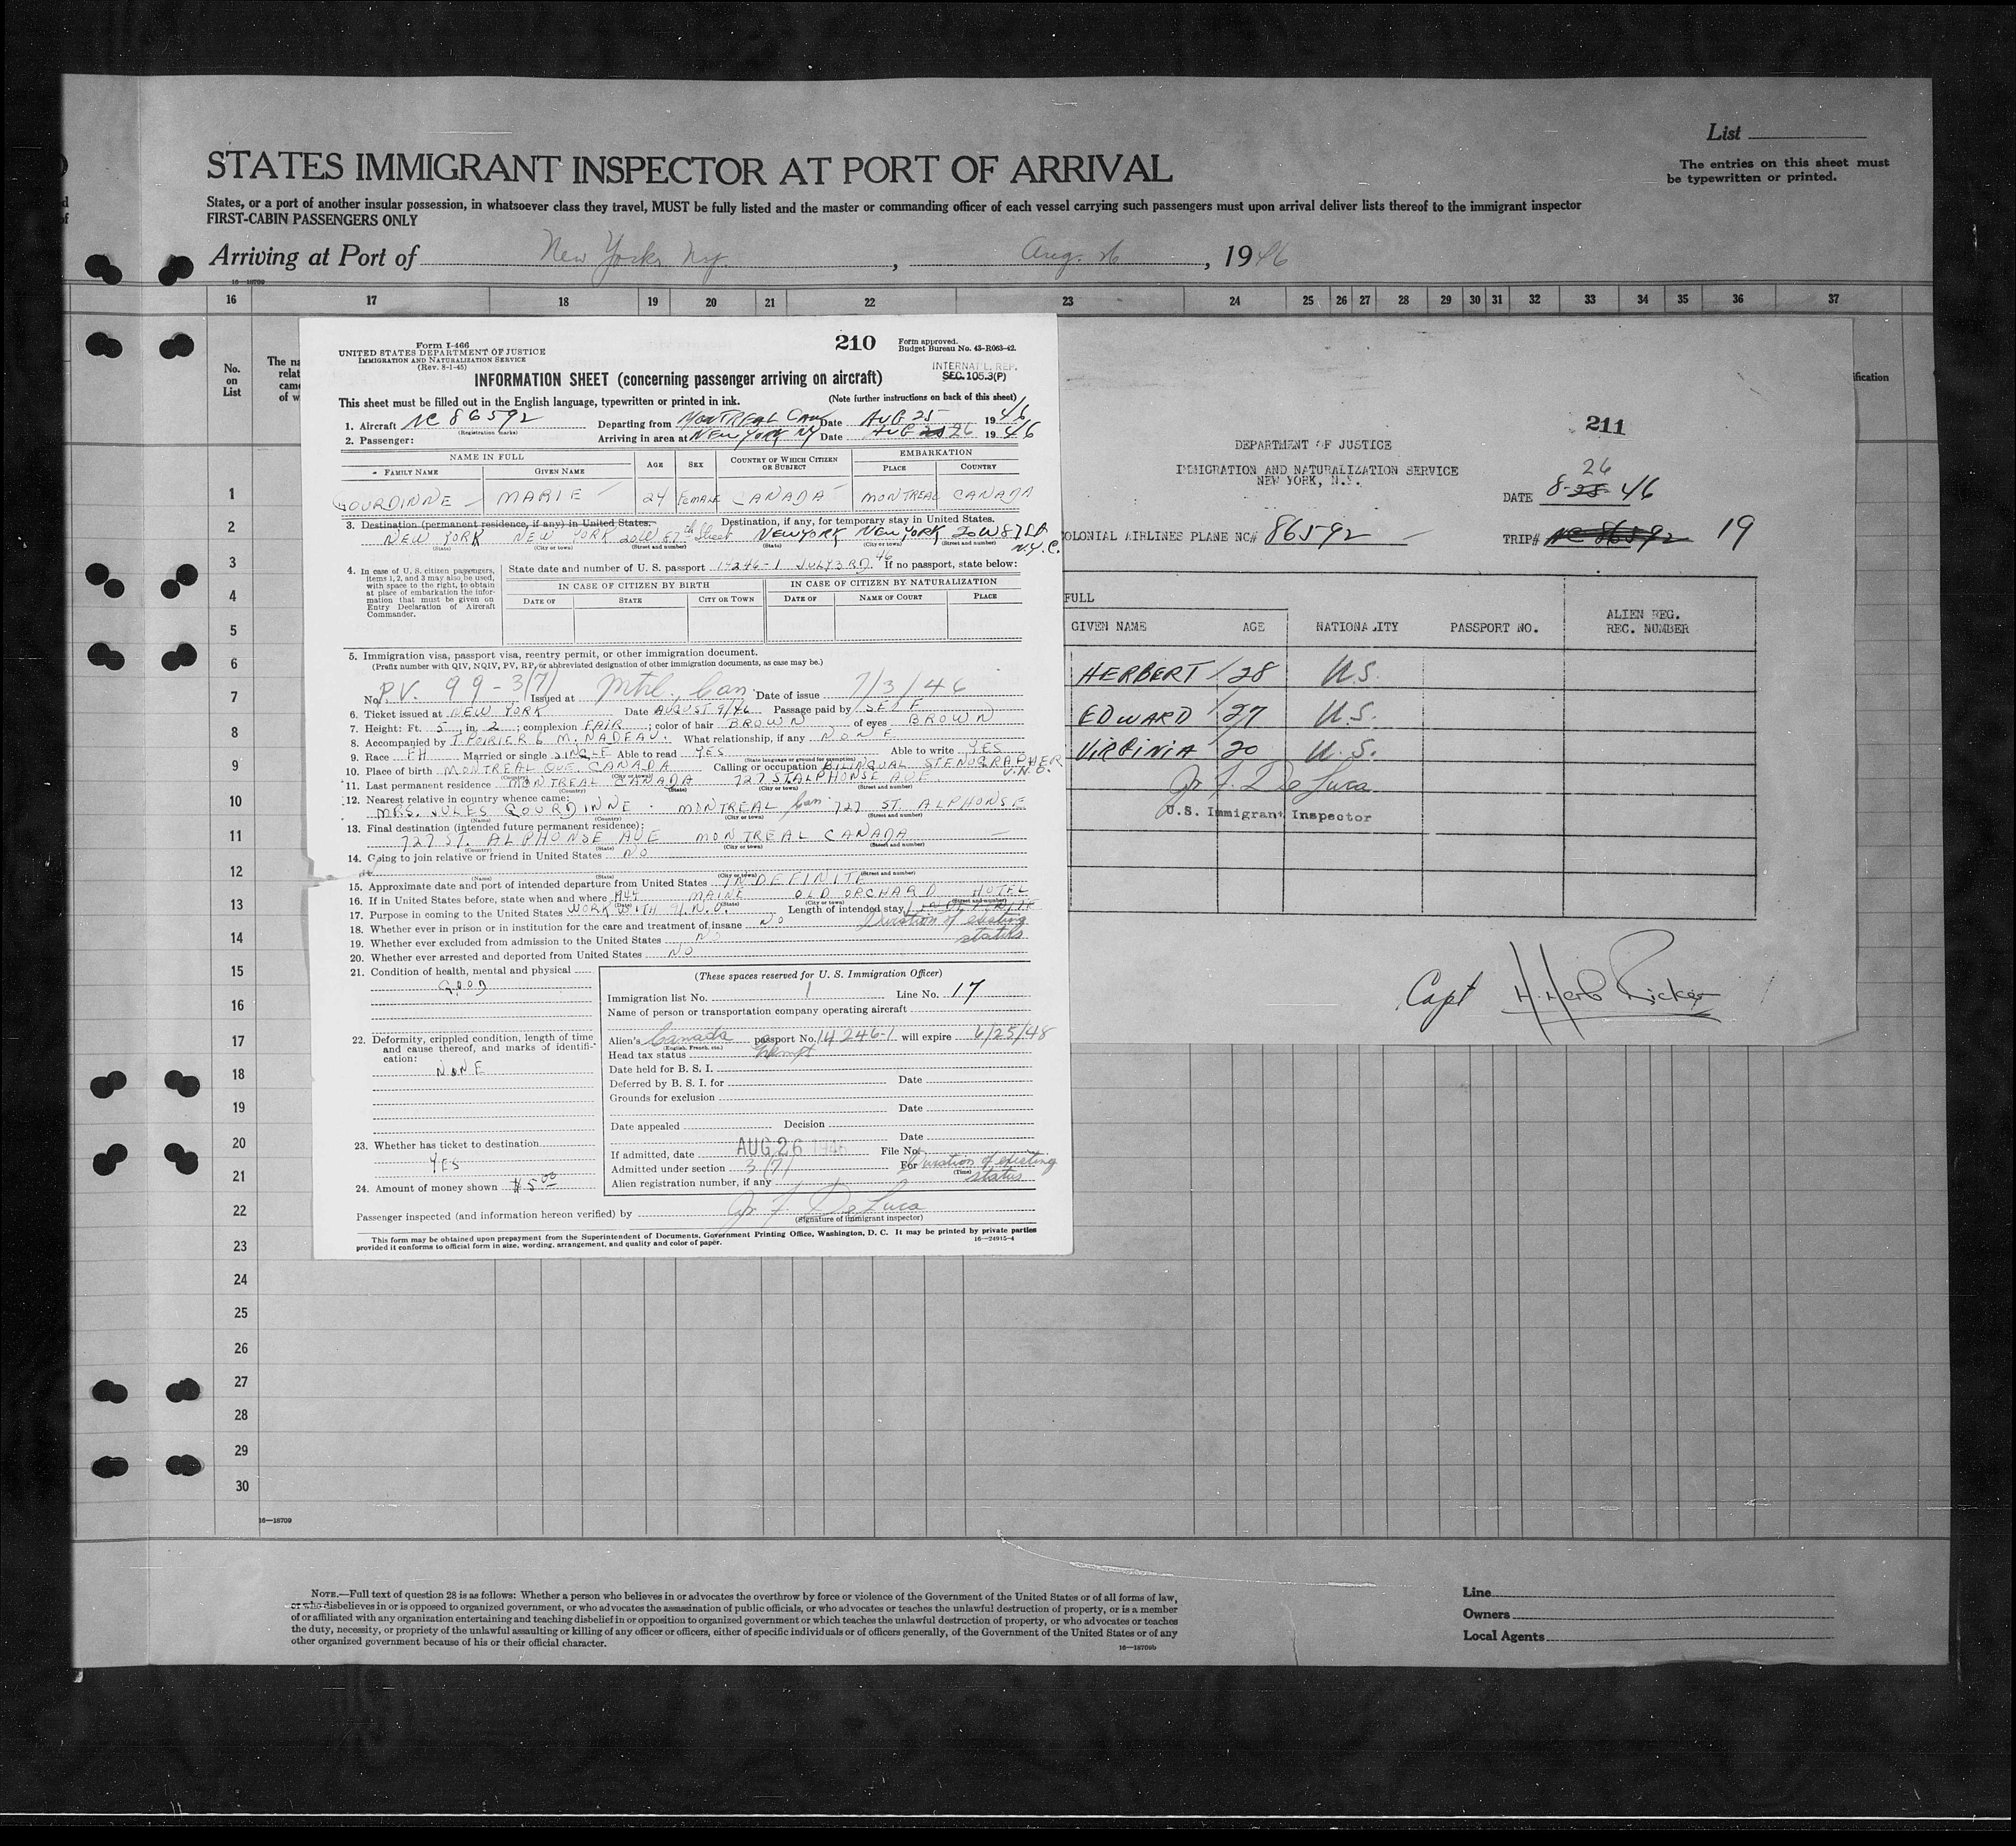 List
STATES IMMIGRANT INSPECTOR AT PORT OF ARRIVAL
The entries on this sheet must
be typewritten or printed.
States, or a port of another insular possession, in whatsoever class they travel, MUST be fully listed and the master or commanding officer of each vessel carrying such passengers must upon arrival deliver lists thereof to the immigrant inspector
FIRST-CABIN PASSENGERS ONLY
Arriving at Port of New York, N.Y. , Aug. 26 , 1946
16—18709
16 17 18 19 20 21 22 23 24 25 26 27 28 29 30 31 32 33 34 35 36 37
No.
on
List
The na
relat
came
of w
ification
1
2
3
4
5
6
7
8
9
10
11
12
13
14
15
16
17
18
19
20
21
22
23
24
25
26
27
28
29
30
16—18709
Form I-466
UNITED STATES DEPARTMENT OF JUSTICE
IMMIGRATION AND NATURALIZATION SERVICE
(Rev. 8-1-45)
210
Form approved.
Budget Bureau No. 43-R063-42.
INTERNAT'L. REP.
SEC. 105.3(P)
INFORMATION SHEET (concerning passenger arriving on aircraft)
This sheet must be filled out in the English language, typewritten or printed in ink. (Note further instructions on back of this sheet)
1. Aircraft NC 86592 Departing from MONTREAL CAN Date AUG 25 1946
(Registration marks)
2. Passenger: Arriving in area at NEW YORK NY Date AUG 25 26 1946
NAME IN FULL AGE SEX COUNTRY OF WHICH CITIZEN OR SUBJECT EMBARKATION
FAMILY NAME GIVEN NAME PLACE COUNTRY
GOURDINNE MARIE 24 FEMALE CANADA MONTREAL CANADA
3. Destination (permanent residence, if any) in United States. Destination, if any, for temporary stay in United States.
NEW YORK NEW YORK 20W 87th Street NEW YORK NEW YORK 20W 87 St
N.Y.C.
(State) (City or town) (Street and number) (State) (City or town) (Street and number)
4. In case of U. S. citizen passengers, items 1, 2, and 3 may also be used, with space to the right, to obtain at place of embarkation the information that must be given on Entry Declaration of Aircraft Commander.
State date and number of U. S. passport 14246-1 JULY 3RD 46 If no passport, state below:
IN CASE OF CITIZEN BY BIRTH IN CASE OF CITIZEN BY NATURALIZATION
DATE OF STATE CITY OR TOWN DATE OF NAME OF COURT PLACE
5. Immigration visa, passport visa, reentry permit, or other immigration document.
(Prefix number with QIV, NQIV, PV, RP, or abbreviated designation of other immigration documents, as case may be.)
No. P.V. 99-3(7) Issued at Mtrl. Can. Date of issue 7/3/46
6. Ticket issued at NEW YORK Date AUGUST 9/46 Passage paid by SELF
7. Height: Ft. 5 in. 2; complexion FAIR; color of hair BROWN of eyes BROWN
8. Accompanied by T. POIRIER & M. NADEAU. What relationship, if any NONE
9. Race FH Married or single SINGLE Able to read YES Able to write YES
(State language or ground for exemption)
10. Place of birth MONTREAL QUE. CANADA Calling or occupation BILINGUAL STENOGRAPHER
U.N.O.
(Country) (City or town) (State)
11. Last permanent residence MONTREAL CANADA 727 ST ALPHONSE AVE
(Country) (State) (City or town) (Street and number)
12. Nearest relative in country whence came:
MRS. JULES GOURDINNE. MONTREAL Can 727 ST. ALPHONSE
(Name) (Country) (City or town) (Street and number)
13. Final destination (intended future permanent residence):
727 ST. ALPHONSE AVE MONTREAL CANADA
(Country) (State) (City or town) (Street and number)
14. Going to join relative or friend in United States NO
(Name) (State) (City or town) (Street and number)
15. Approximate date and port of intended departure from United States INDEFINITE
16. If in United States before, state when and where 1944 MAINE OLD ORCHARD HOTEL
(Date) (State) (City or town) (Street and number)
17. Purpose in coming to the United States WORK WITH U.N.O. Length of intended stay INDEFINITE
Duration of existing
status
18. Whether ever in prison or in institution for the care and treatment of insane NO
19. Whether ever excluded from admission to the United States NO
20. Whether ever arrested and deported from United States NO
21. Condition of health, mental and physical
GOOD
22. Deformity, crippled condition, length of time and cause thereof, and marks of identification:
NONE
23. Whether has ticket to destination
YES
24. Amount of money shown $5.00
(These spaces reserved for U. S. Immigration Officer)
Immigration list No. 1 Line No. 17
Name of person or transportation company operating aircraft
Alien's Canada passport No. 14246-1 will expire 6/25/48
(English, French, etc.)
Head tax status Exempt
Date held for B. S. I.
Deferred by B. S. I. for Date
Grounds for exclusion
Date
Date appealed Decision
Date
If admitted, date AUG 26 1946 File No.
Admitted under section 3(7) For Duration of existing status
(Time)
Alien registration number, if any
Passenger inspected (and information hereon verified) by Jr F. De Luca
(Signature of immigrant inspector)
This form may be obtained upon prepayment from the Superintendent of Documents, Government Printing Office, Washington, D. C. It may be printed by private parties
provided it conforms to official form in size, wording, arrangement, and quality and color of paper. 16—24915-4
211
DEPARTMENT OF JUSTICE
IMMIGRATION AND NATURALIZATION SERVICE
NEW YORK, N.Y.
DATE 8-25-46
26
OLONIAL AIRLINES PLANE NC# 86592 TRIP# NC 86592 19
FULL
GIVEN NAME AGE NATIONALITY PASSPORT NO. ALIEN REG.
REC. NUMBER
HERBERT 28 U.S.
EDWARD 27 U.S.
VIRGINIA 20 U.S.
Jr F. De Luca
U.S. Immigrant Inspector
Capt H. Herb Ricker
NOTE.—Full text of question 28 is as follows: Whether a person who believes in or advocates the overthrow by force or violence of the Government of the United States or of all forms of law,
or who disbelieves in or is opposed to organized government, or who advocates the assassination of public officials, or who advocates or teaches the unlawful destruction of property, or is a member
of or affiliated with any organization entertaining and teaching disbelief in or opposition to organized government or which teaches the unlawful destruction of property, or who advocates or teaches
the duty, necessity, or propriety of the unlawful assaulting or killing of any officer or officers, either of specific individuals or of officers generally, of the Government of the United States or of any
other organized government because of his or their official character. 16—18709b
Line
Owners
Local Agents